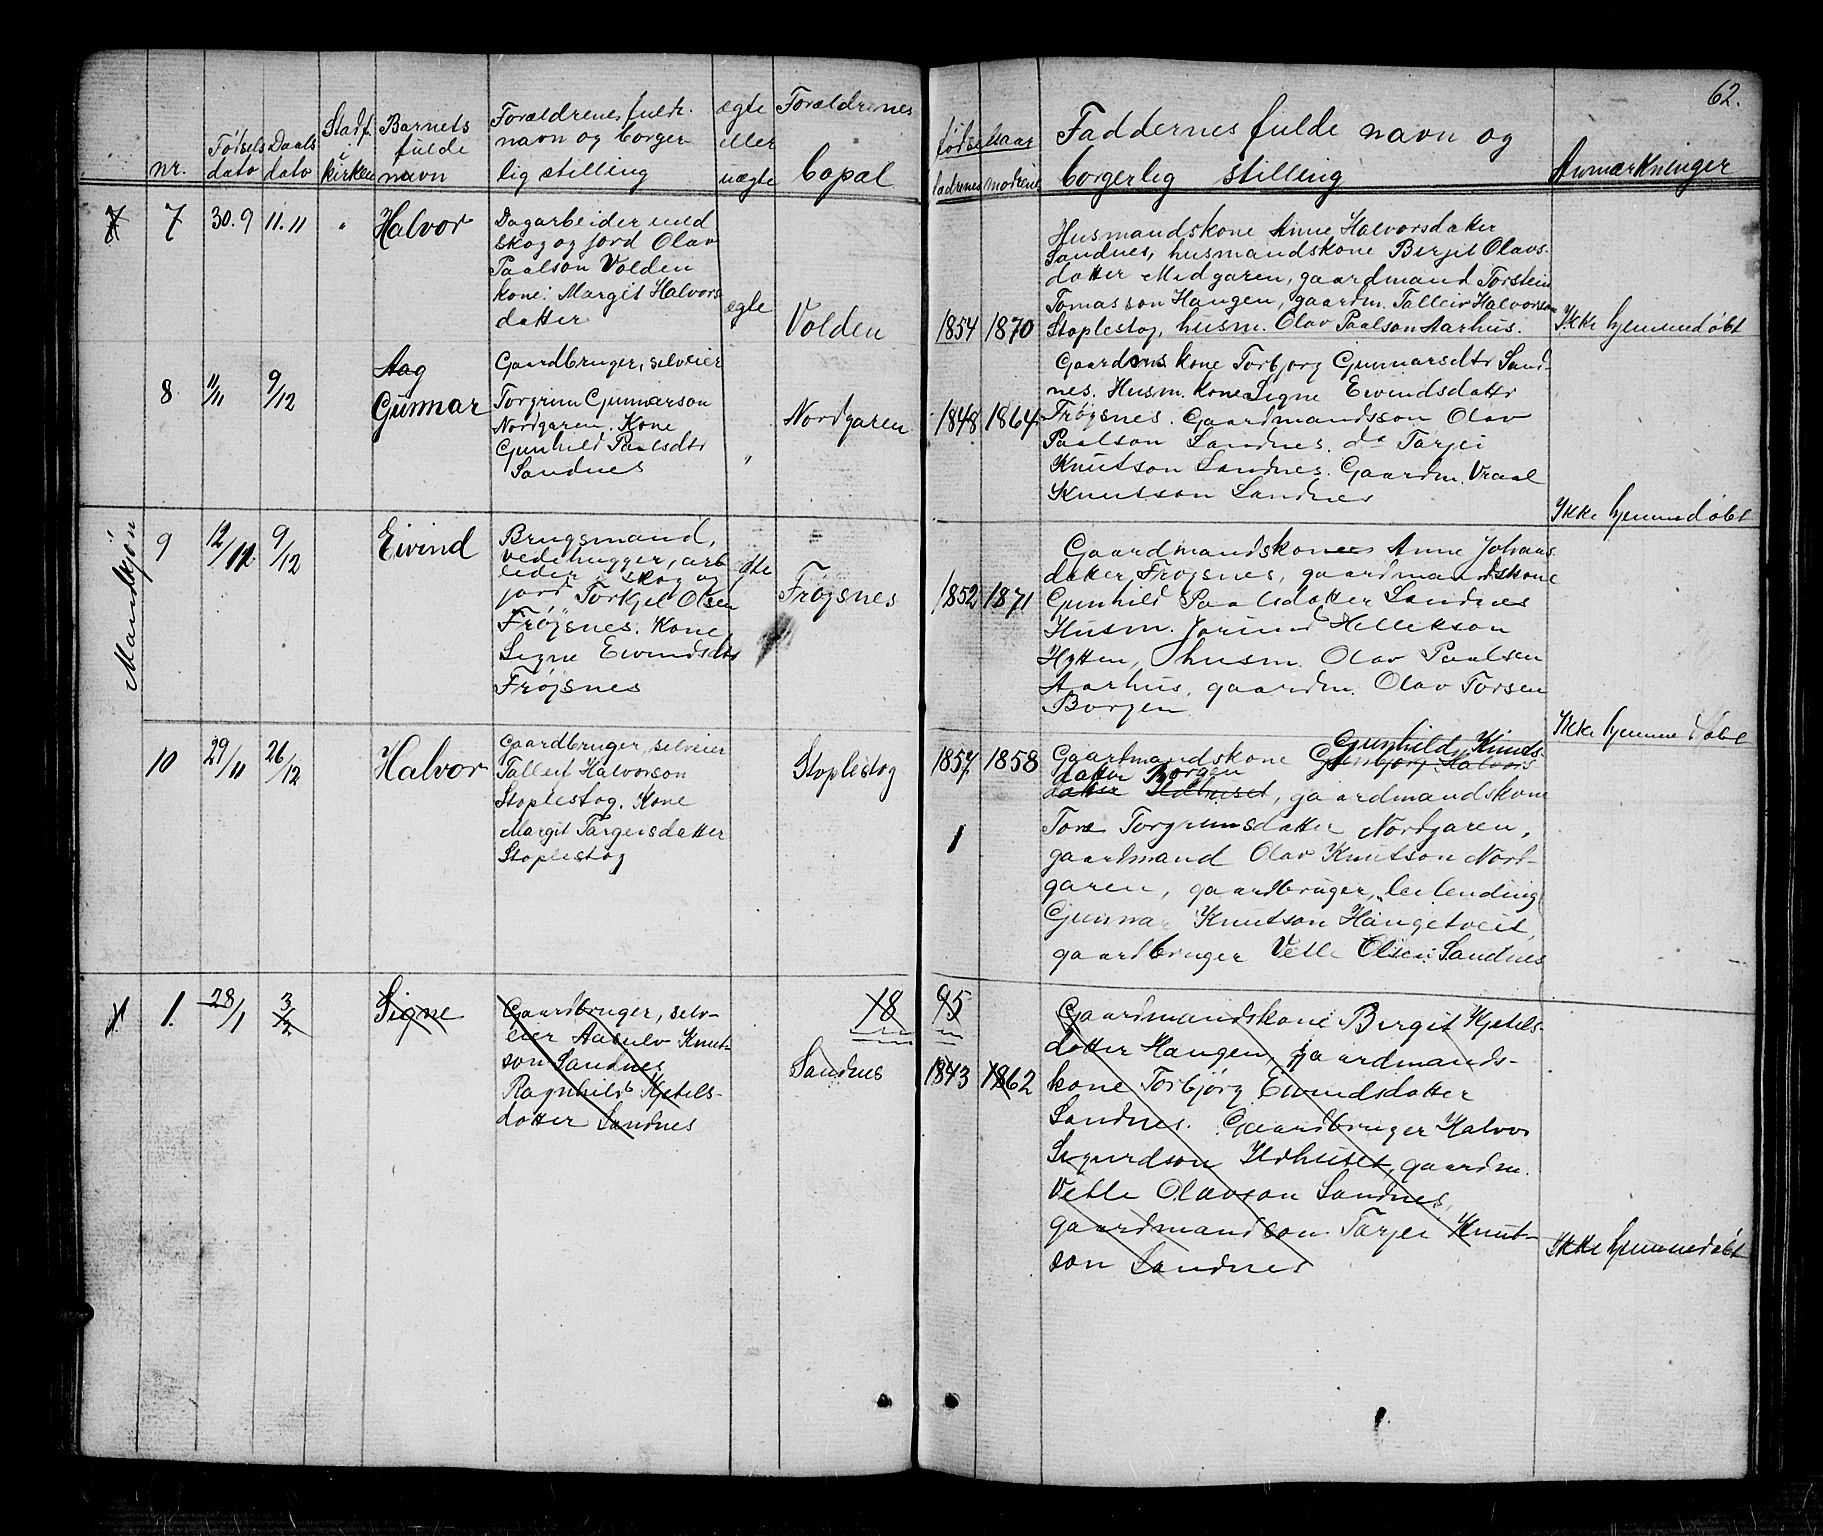 62.
nr.
Fødsels
dato
Daabs
dato
Stadf.
i
kirken
Barnets
fulde
navn
Forældrenes fulde
navn og borger
lig stilling
ægte
eller
uægte
Forældrenes
bopæl
fødselsaar
fadrenes modrenes
Faddernes fulde navn og
borgerlig stilling
Anmærkninger
7 7 30.9 11.11 " Halvor
Dagarbeider med
skog og jord Olav
Paalson Volden
kone: Margit Halvors
datter
ægte
Volden
1854 1870
Husmandskone Anne Halvorsdatter
Sandnes, husmandskone Birgit Olavs-
datter Midgaren, gaardmand Torstein
Tomasson Haugen, gaardm. Talleiv Halvorson
Stoplestog, husm. Olav Paalson Aarhus.
Ikke hjemmedøbt
8 11/11 9/12
Aag
Gunnar
Gaardbruger, selveier
Torgrim Gunnarson
Nordgaren. Kone
Gunhild Paalsdtr
Sandnes
"
Nordgaren
1848 1864
Gaardms kone Torbjorg Gunnarsdtr Sand-
nes. Husm. kone Signe Eivindsdattr
Frøjsnes. Gaardmandsson Olav
Paalson Sandnes. do Tarjei
Knutson Sandnes. Gaardm. Vraal
Knutson Sandnes
Ikke hjemmedøbt
Mandkjøn
9 12/11 9/12 Eivind
Brugsmand,
vedehugger, arb
eider i skog og
jord Torkjel Olsen
Frøjsnes. Kone
Signe Eivindsdtr
Frøjsnes
ægte
Frøjsnes
1852 1871
Gaardmandskone Anne Johans
datter Frøjsnes, gaardmandskone
Gunhild Paalsdatter Sandnes
Husm. Jorund Hellekson
Hytten, husm. Olav Paalsen
Aarhus, gaardm. Olav Torsen
Borgen
Ikke hjemmedøbt
10 29/11 26/12 Halvor
Gaardbruger, selveier
Talleiv Halvorson
Stoplestog. Kone
Margit Targeisdatter
Stoplestog
Stoplestog
1857 1858
Gunhild Knuds-
Gaardmandskone Gunbjorg Halvors
datter Borgen
datter Ildhuset, gaardmandskone
Tone Torgrimsdatter Nordgaren,
gaardmand Olav Knutson Nord-
garen, gaardbruger, leilending
Gunnar Knutson Haugetveit,
gaardbruger Vetle Olsen Sandnes
1 1. 28/1 3/2 Signe
Gaardbruger, selv-
eier Aasulv Knut-
son Sandnes
Ragnhild Kjetels-
datter Sandnes
18 95
Sandnes
1843 1862
Gaardmandskone Birgit Kjetels-
datter Haugen, gaardmands-
kone Torbjørg Eivindsdatter
Sandnes. Gaardbruger Halvor
Sigurdson Ildhuset, gaardm.
Vetle Olavson Sandnes,
gaardmandson Tarjei Knut-
son Sandnes
Ikke hjemmedøbt